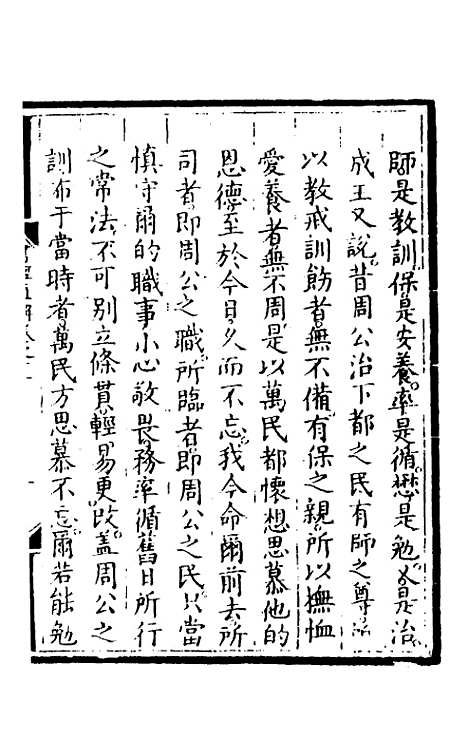 師是教訓保是安養率是循懋是勉乂是治
成王又說昔周公治下都之民有師之尊所
以教戒訓飭者無不備有保之親所以撫恤
愛養者無不周是以萬民都懷想思慕他的
恩德至於今日久而不忘我今命爾前去所
司者即周公之職所臨者即周公之民只當
慎守爾的職事小心敬畏務率循舊日所行
之常法不可別立條貫輕易更改蓋周公之
訓布于當時者萬民方思慕不忘爾若能勉